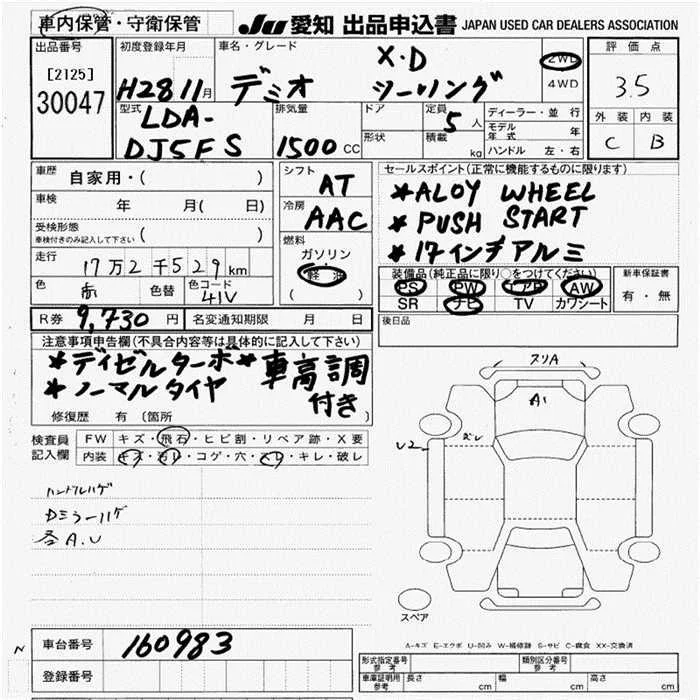 車内保管・守衛保管 JU 愛知 出品申込書 JAPAN USED CAR DEALERS ASSOCIATION
出品番号 [2125] 30047
初度登録年月 H28 11月
車名・グレード デミオ X・D ツーリング
2WD 4WD
評価点 3.5
外装 内装 C B
型式 LDA-DJ5FS
排気量 1500 CC
ドア 形状
定員 5人 積載 kg
ディーラー・並行
モデル年式 年
ハンドル 左・右
車歴 自家用・( )
車検 年 月( 日)
受検形態 車検付きのみ記入して下さい ( )
走行 17万2千529km
色 赤 色替 色コード 41V
シフト AT
冷房 AAC
燃料 ガソリン 軽油 ( )
セールスポイント(正常に機能するものに限ります)
*ALOY WHEEL
*PUSH START
*17インチアルミ
装備品(純正品に限り○をつけてください)
PS PW エアB AW
SR ナビ TV カワシート
新車保証書 有・無
R券 9,730円 名変通知期限 月 日
後日品
注意事項申告欄(不具合内容等は具体的に記入して下さい)
*ディゼルターボ*車高調付き
*ノーマルタイヤ
修復歴 有 (箇所 )
検査員記入欄 FW キズ・飛石・ヒビ割・リペア跡・X要
内装 キズ・汚レ・コゲ・穴・スレ・キレ・破レ
ハンドルハゲ
Dミラーハゲ
各A.U
スリA
A1
U2
ズレ
スペア
A-キズ E-エクボ U-凹み W-補修跡 S-サビ C-腐食 XX-交換済
N 車台番号 160983
登録番号
形式指定番号 参考 類別区分番号 参考
車庫証明用 参考 長さ cm 幅 cm 高さ cm